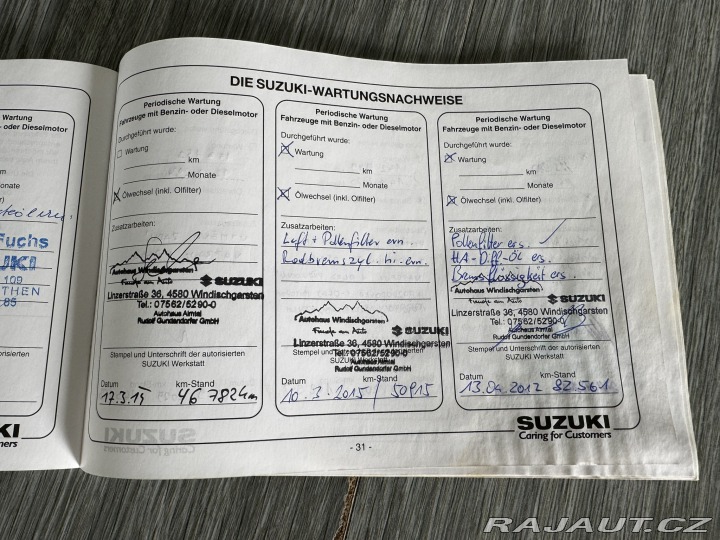 DIE SUZUKI-WARTUNGSNACHWEISE
Wartung
- oder Dieselmotor
km
Monate
Fuchs
109
THEN
85
autorisierten
Periodische Wartung
Fahrzeuge mit Benzin- oder Dieselmotor
Durchgeführt wurde:
Wartung
km
Monate
Ölwechsel (inkl. Ölfilter)
Zusatzarbeiten:
Autohaus Windischgarsten
Freude am Auto
SUZUKI
Linzerstraße 36, 4580 Windischgarsten
Tel.: 07562/5290-0
Autohaus Almtal
Rudolf Gundendorfer GmbH
Stempel und Unterschrift der autorisierten
SUZUKI Werkstatt
Datum km-Stand
46 782 km
Periodische Wartung
Fahrzeuge mit Benzin- oder Dieselmotor
Durchgeführt wurde:
Wartung
km
Monate
Ölwechsel (inkl. Ölfilter)
Zusatzarbeiten:
Luft + Pollenfilter ern.
Radbremszyl. hi. ern.
Autohaus Windischgarsten
Freude am Auto
SUZUKI
Linzerstraße 36, 4580 Windischgarsten
Tel.: 07562/5290-0
Autohaus Almtal
Rudolf Gundendorfer GmbH
Datum km-Stand
10.3.2015 / 50915
Periodische Wartung
Fahrzeuge mit Benzin- oder Dieselmotor
Durchgeführt wurde:
Wartung
km
Monate
Ölwechsel (inkl. Ölfilter)
Zusatzarbeiten:
Pollenfilter ers.
HA-Diff-Öl ers.
Bremsflüssigkeit ers.
Autohaus Windischgarsten
Freude am Auto
SUZUKI
Linzerstraße 36, 4580 Windischgarsten
Tel.: 07562/5290-0
Autohaus Almtal
Rudolf Gundendorfer GmbH
Stempel und Unterschrift der autorisierten
SUZUKI Werkstatt
Datum km-Stand
82.561
SUZUKI
Caring for Customers
- 31 -
RAJAUT.CZ